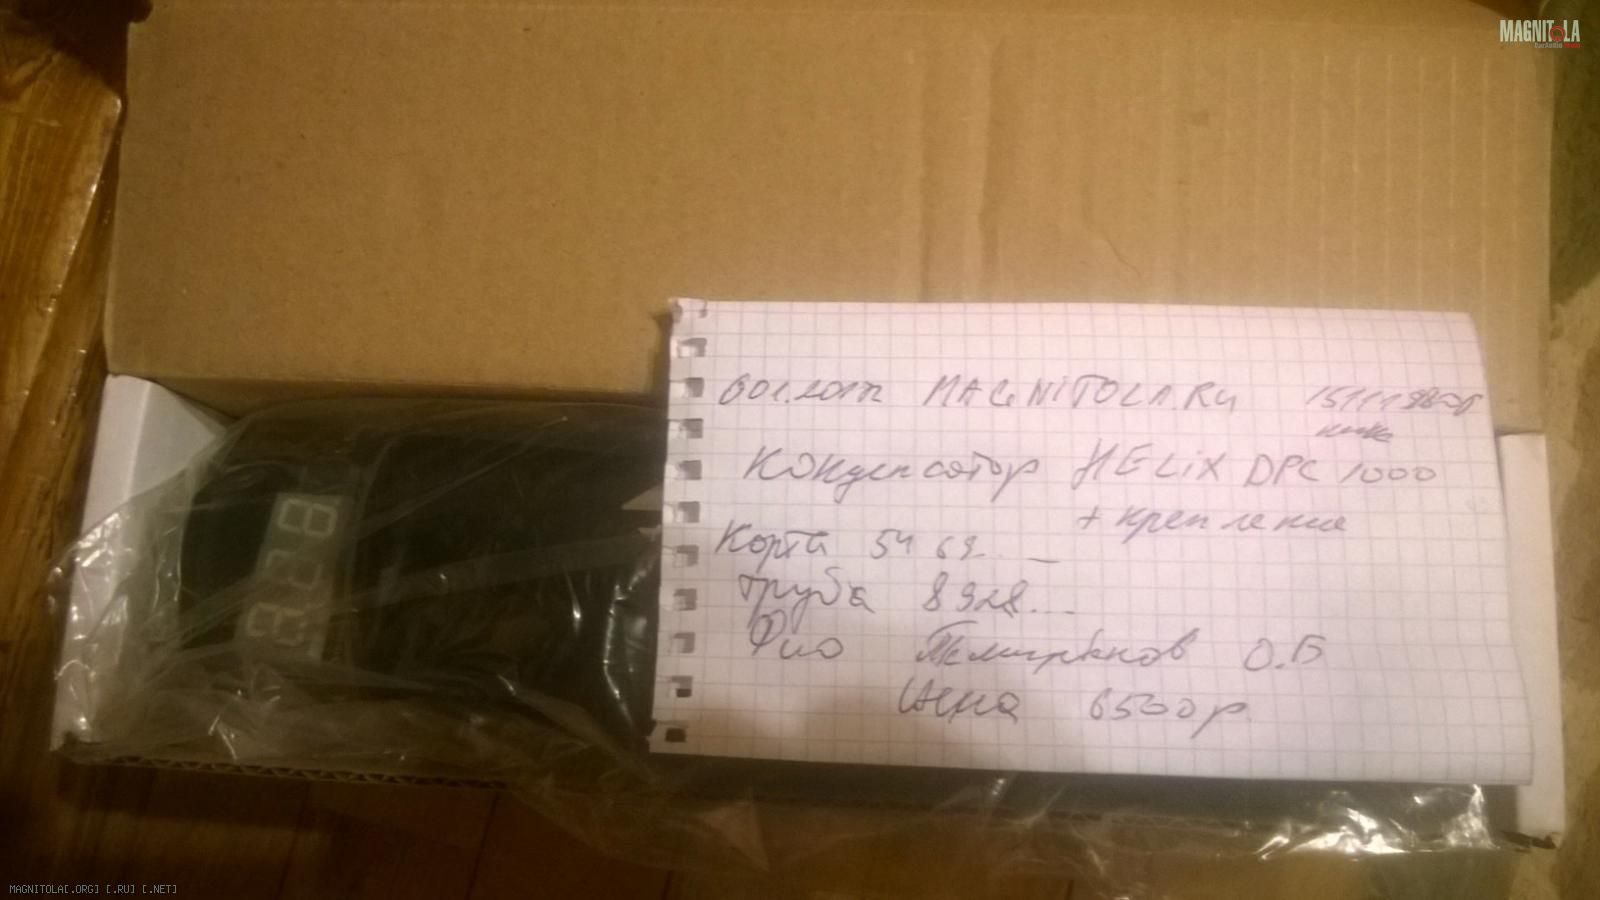 MAGNITOLA
CarAudio
MAGNITOLA.RU
Конденсатор HELIX DPC 1000
+ крепление
Карта 5469...
труба 8928...
Фио О.Б
Цена 6500р.
MAGNITOLA[.ORG] [.RU] [.NET]